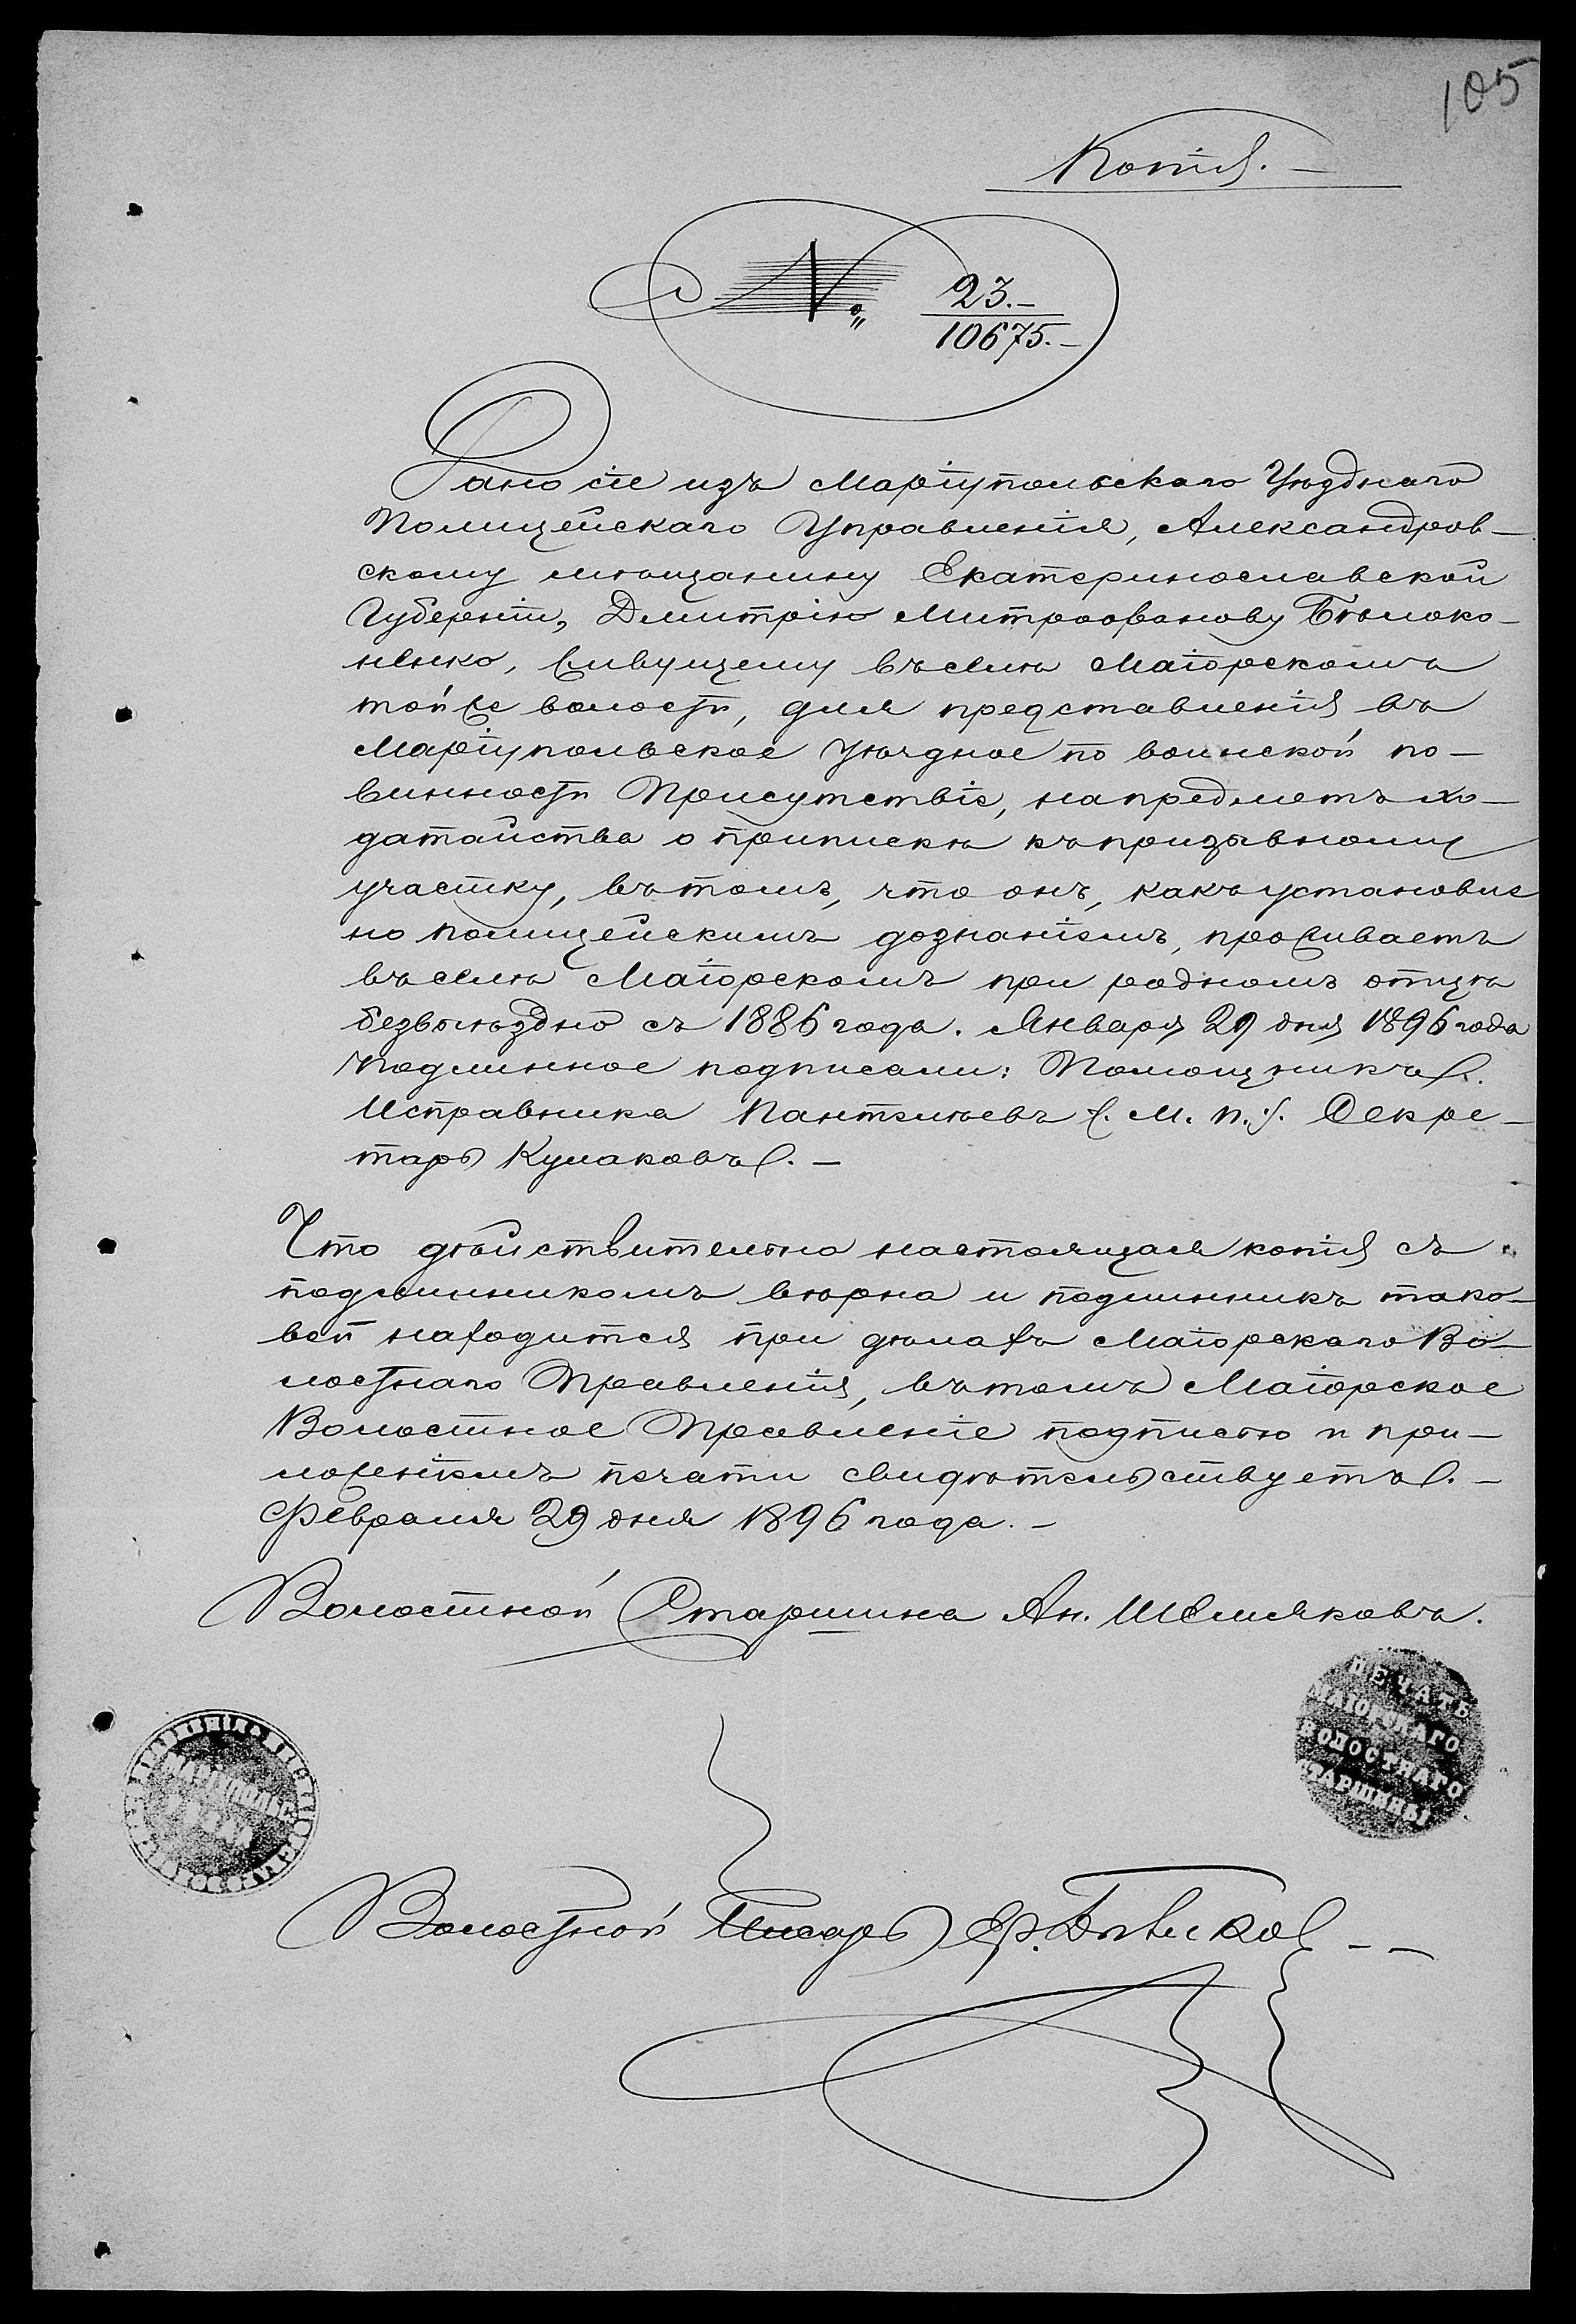 105
Копія. —
№ 23.—
10675.—
Дано сіе изъ Маріупольскаго Уѣзднаго
Полицейскаго Управленія, Александров-
скому мѣщанину Екатеринославской
Губерніи, Дмитрію Митрофанову Бѣлоко-
ненко, живущему въ селѣ Маіорскомъ
той же волости, для представленія въ
Маріупольское Уѣздное по воинской по-
винности Присутствіе, на предметъ хо-
датайства о припискѣ къ призывному
участку, въ томъ, что онъ, какъ установле
но полицейскимъ дознаніемъ, проживаетъ
въ селѣ Маіорскомъ при родномъ отцѣ
безвыѣздно съ 1886 года. Января 29 дня 1896 года
Подлинное подписали: Помощникъ
Исправника Пантелѣевъ (. М. П. ). Секре-
тарь Кулаковъ. —
Что дѣйствительно настоящая копія съ
подлинникомъ вѣрна и подлинникъ тако-
вой находится при дѣлахъ Маіорскаго Во-
лостнаго Правленія, въ томъ Маіорское
Волостное Правленіе подписью и при-
ложеніемъ печати свидѣтельствуетъ. —
Февраля 29 дня 1896 года. —
Волостной Старшина Ан. Шемяковъ.
ПЕЧАТЬ
МАІОРСКАГО
ВОЛОСТНАГО
СТАРШИНЫ
МАРІУПОЛЬС
Волостной Писарь